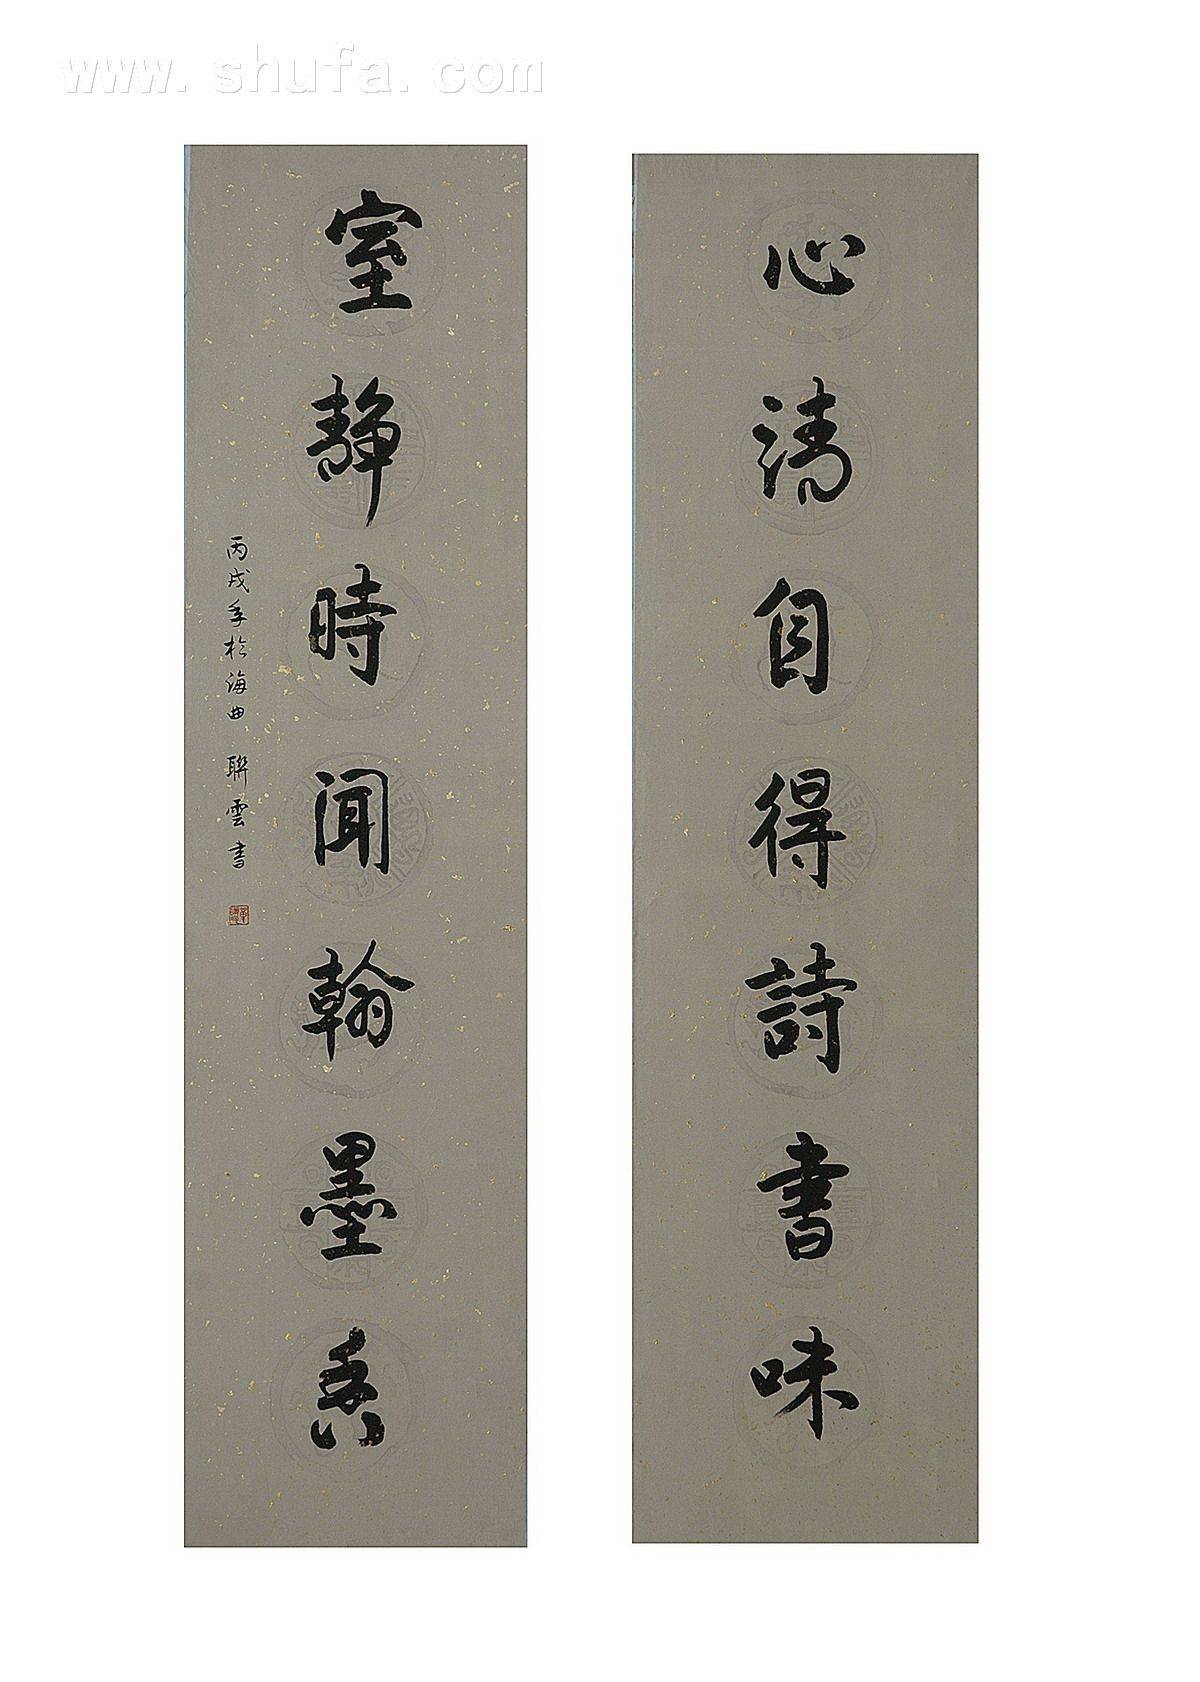 www.shufa.com
心清自得詩書味
室靜時聞翰墨香
丙戌年於海曲 聯雲書